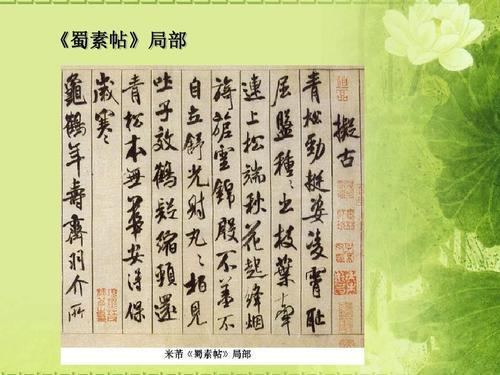 《蜀素帖》局部
擬古
青松勁挺姿凌霄耻
屈盤種〻出枝葉牽
連上松端秋花起絳烟
旖旎雲錦殷不羞不
自立舒光射丸〻柏見
吐子效鶴疑縮頸還
青松本無華安得保
歲寒
龜鶴年壽齊羽介所
米芾《蜀素帖》局部